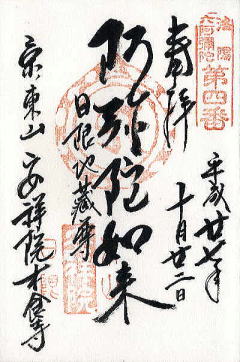 洛陽
六阿彌陀
第四番
奉拝
平成廿七年
十月廿二日
阿弥陀如来
日限地蔵尊
京東山 安祥院木食寺